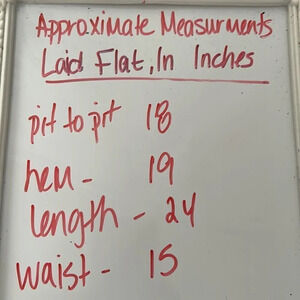 Approximate Measurments
Laid Flat, In Inches
pit to pit 18
hem - 19
length - 24
waist - 15